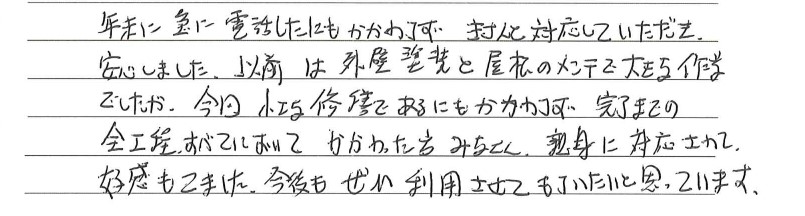 年末に急に電話したにもかかわらず、きちんと対応していただき、
安心しました。以前は外壁塗装と屋根のメンテで大きな作業
でしたが、今回小さな修繕であるにもかかわらず、完了までの
全工程、すべてにおいてかかわった方みなさん、親身に対応されて、
好感もてました。今後もぜひ利用させてもらいたいと思っています。